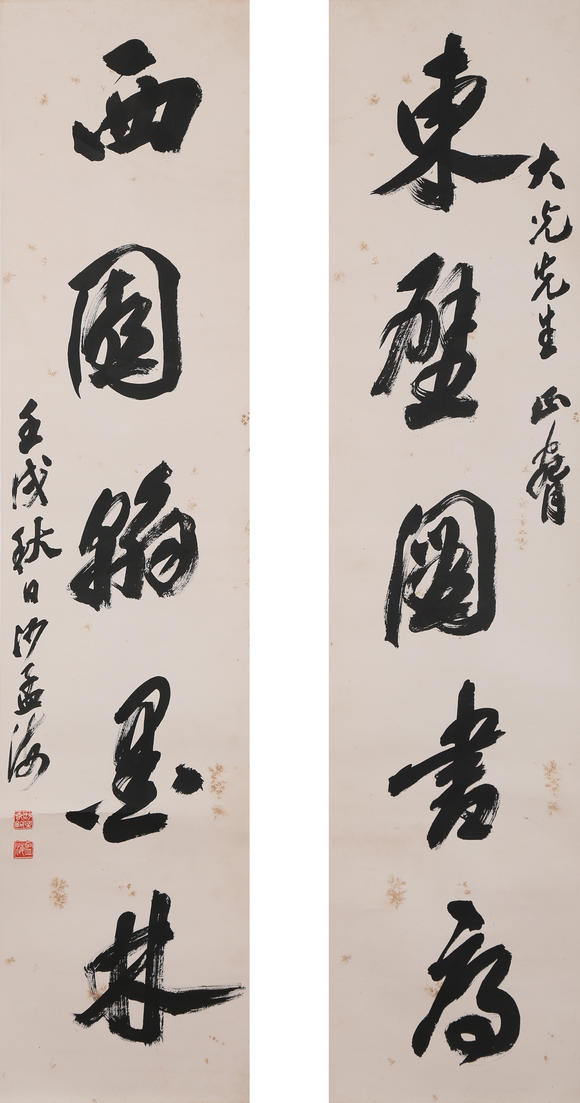 大光先生 正
東壁圖書府
西園翰墨林
壬戌秋日沙孟海